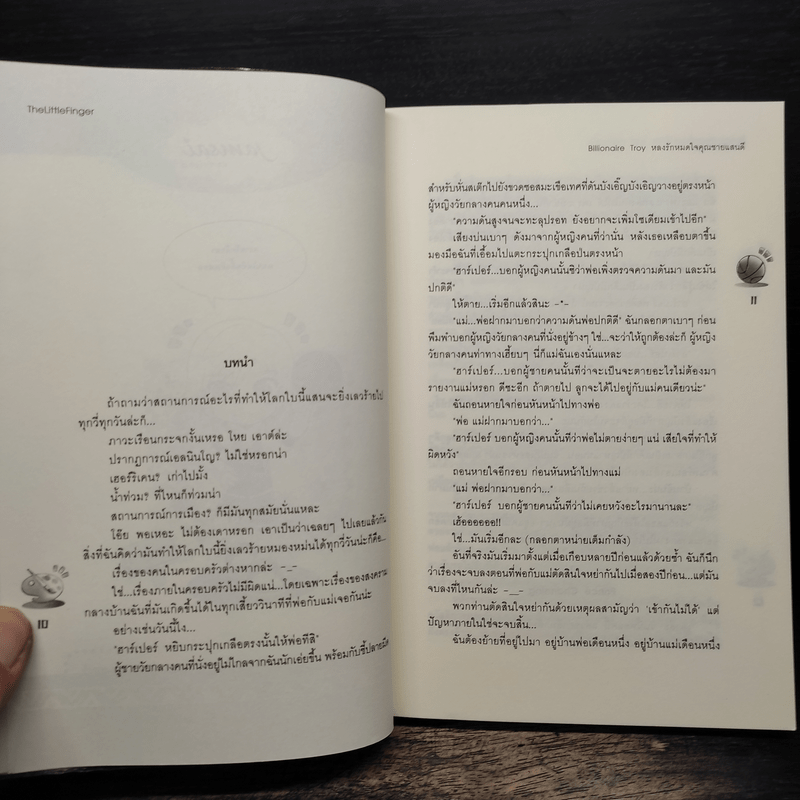 TheLittleFinger
บทนำ
ถ้าถามว่าสถานการณ์อะไรที่ทำให้โลกใบนี้แสนจะยิ่งเลวร้ายไป
ทุกวี่ทุกวันล่ะก็...
ภาวะเรือนกระจกงั้นเหรอ โหย เอาต์ล่ะ
ปรากฏการณ์เอลนินโญ? ไม่ใช่หรอกน่า
เฮอร์ริเคน? เก่าไปมั้ง
น้ำท่วม? ที่ไหนก็ท่วมน่า
สถานการณ์การเมือง? ก็มีมันทุกสมัยนั่นแหละ
โอ๊ย พอเหอะ ไม่ต้องเดาหรอก เอาเป็นว่าเฉลยๆ ไปเลยแล้วกัน
สิ่งที่ฉันคิดว่ามันทำให้โลกใบนี้ยิ่งเลวร้ายหมองหม่นได้ทุกวี่วันน่ะก็คือ...
เรื่องของคนในครอบครัวต่างหากล่ะ -_-
ใช่...เรื่องภายในครอบครัวไม่มีผิดแน่...โดยเฉพาะเรื่องของสงคราม
กลางบ้านฉันที่มันเกิดขึ้นได้ในทุกเสี้ยววินาทีที่พ่อกับแม่เจอกันน่ะ
อย่างเช่นวันนี้ไง...
"ฮาร์เปอร์ หยิบกระปุกเกลือตรงนั้นให้พ่อทีสิ"
ผู้ชายวัยกลางคนที่นั่งอยู่ไม่ไกลจากฉันนักเอ่ยขึ้น พร้อมกับชี้ปลายมีด
10
Billionaire Troy หลงรักหมดใจคุณชายแสนดี
สำหรับหั่นสเต๊กไปยังขวดซอสมะเขือเทศที่ดันบังเอิ๊ญบังเอิญวางอยู่ตรงหน้า
ผู้หญิงวัยกลางคนคนหนึ่ง...
"ความดันสูงจนจะทะลุปรอท ยังอยากจะเพิ่มโซเดียมเข้าไปอีก"
เสียงบ่นเบาๆ ดังมาจากผู้หญิงคนที่ว่านั่น หลังเธอเหลือบตาขึ้น
มองมือฉันที่เอื้อมไปแตะกระปุกเกลือป่นตรงหน้า
"ฮาร์เปอร์...บอกผู้หญิงคนนั้นซิว่าพ่อเพิ่งตรวจความดันมา และมัน
ปกติดี"
ให้ตาย...เริ่มอีกแล้วสินะ -*-
"แม่...พ่อฝากมาบอกว่าความดันพ่อปกติดี" ฉันกลอกตาเบาๆ ก่อน
พึมพำบอกผู้หญิงวัยกลางคนที่นั่งอยู่ข้างๆ ใช่...จะว่าให้ถูกต้องล่ะก็ ผู้หญิง
วัยกลางคนท่าทางเฮี้ยบๆ นี่ก็แม่ฉันเองนั่นแหละ
"ฮาร์เปอร์...บอกผู้ชายคนนั้นทีว่าจะเป็นจะตายอะไรไม่ต้องมา
รายงานแม่หรอก ดีซะอีก ถ้าตายไป ลูกจะได้ไปอยู่กับแม่คนเดียวน่ะ"
ฉันถอนหายใจก่อนหันหน้าไปทางพ่อ
"พ่อ แม่ฝากมาบอกว่า..."
"ฮาร์เปอร์ บอกผู้หญิงคนนั้นทีว่าพ่อไม่ตายง่ายๆ แน่ เสียใจที่ทำให้
ผิดหวัง"
ถอนหายใจอีกรอบ ก่อนหันหน้าไปทางแม่
"แม่ พ่อฝากมาบอกว่า..."
"ฮาร์เปอร์ บอกผู้ชายคนนั้นทีว่าไม่เคยหวังอะไรมานานละ"
เฮ้ออออออ!!
ใช่...มันเริ่มอีกละ (กลอกตาหน่ายเต็มกำลัง)
อันที่จริงมันเริ่มมาตั้งแต่เมื่อเกือบหลายปีก่อนแล้วด้วยซ้ำ ฉันก็นึก
ว่าเรื่องจะจบลงตอนที่พ่อกับแม่ตัดสินใจหย่ากันไปเมื่อสองปีก่อน...แต่มัน
จบลงที่ไหนกันล่ะ -__-
พวกท่านตัดสินใจหย่ากันด้วยเหตุผลสามัญว่า 'เข้ากันไม่ได้' แต่
ปัญหาภายในใช่จะจบสิ้น...
ฉันต้องย้ายที่อยู่ไปมา อยู่บ้านพ่อเดือนหนึ่ง อยู่บ้านแม่เดือนหนึ่ง
11